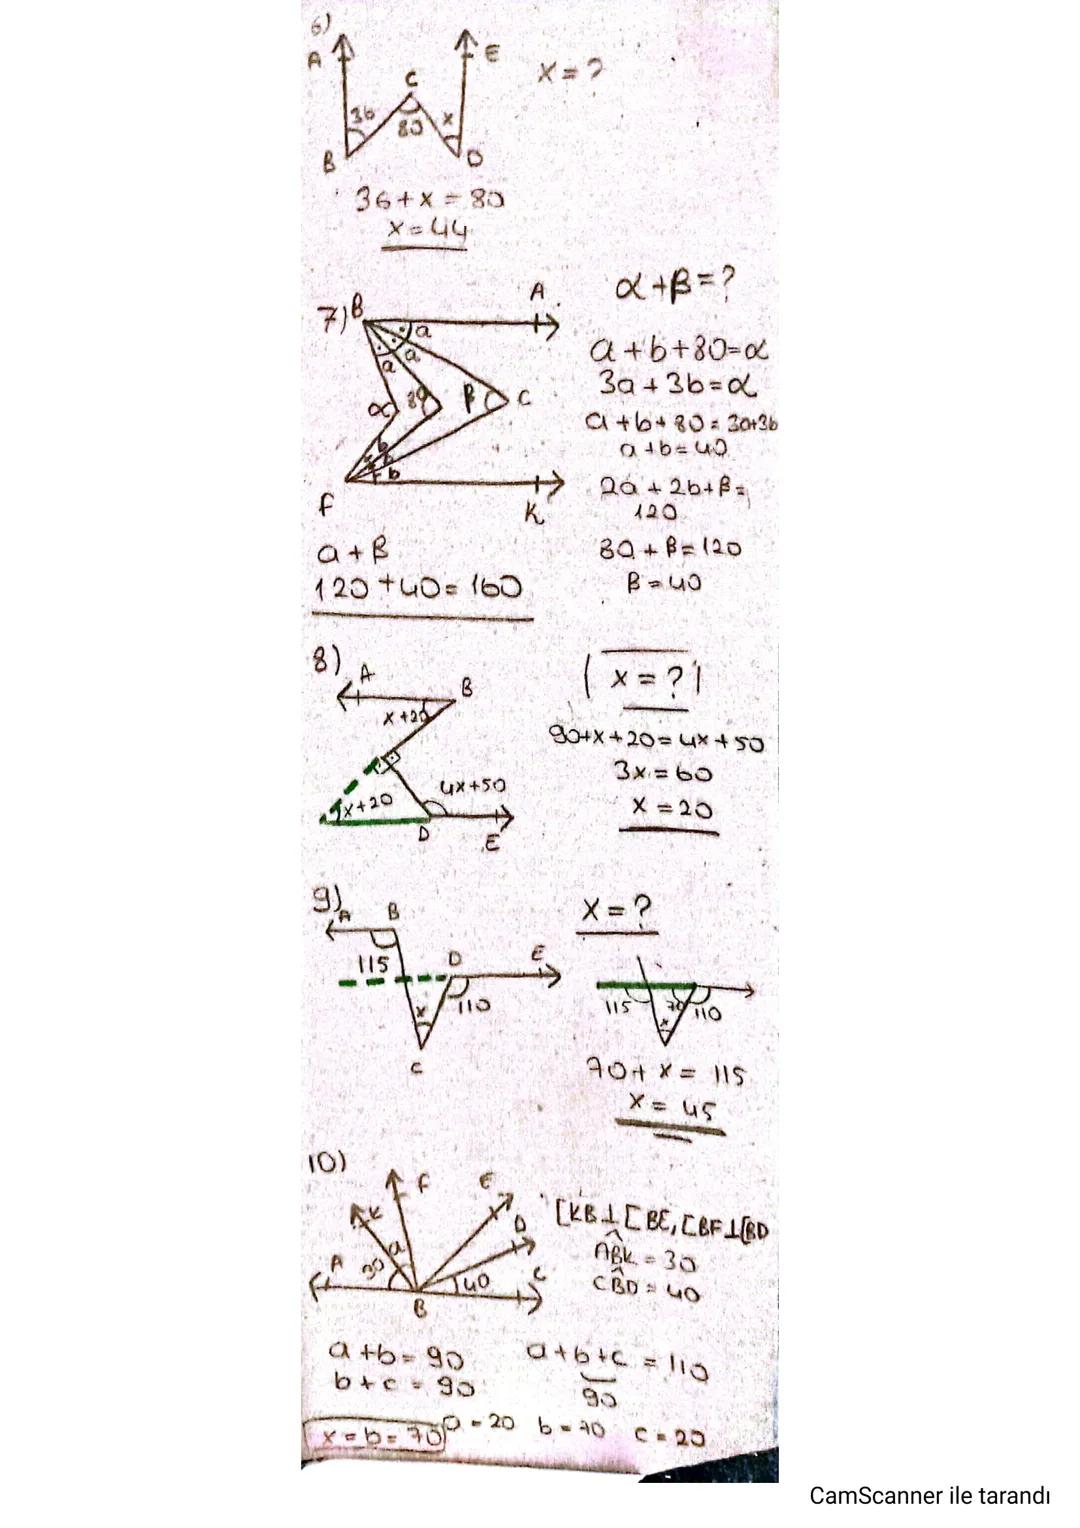 6)
A
E
x = ?
C
36
80
x
B
D
36+x=80
x=44
α+β=?
7)
B
A
a
a
a
α
80
β
C
b
b
b
F
K
a+b+80=α
3a+3b=α
a+b+80=3a+3b
a+b=40
2a+2b+β=
120
80+β=120
β=40
a+β
120+40=160
8)
A
B
x+20
x = ?
4x+50
x+20
D
E
90+x+20=4x+50
3x=60
x=20
9)
A
B
x=?
115
D
E
110
x
C
115
70
110
x
70+x=115
x=45
10)
K
F
E
D
A
30
a
40
C
B
[KB⊥[BE,[BF⊥[BD
ABK=30
CBD=40
a+b=90
b+c=90
a+b+c=110
90
x=b=70
a=20 b=70 c=20
CamScanner ile tarandı